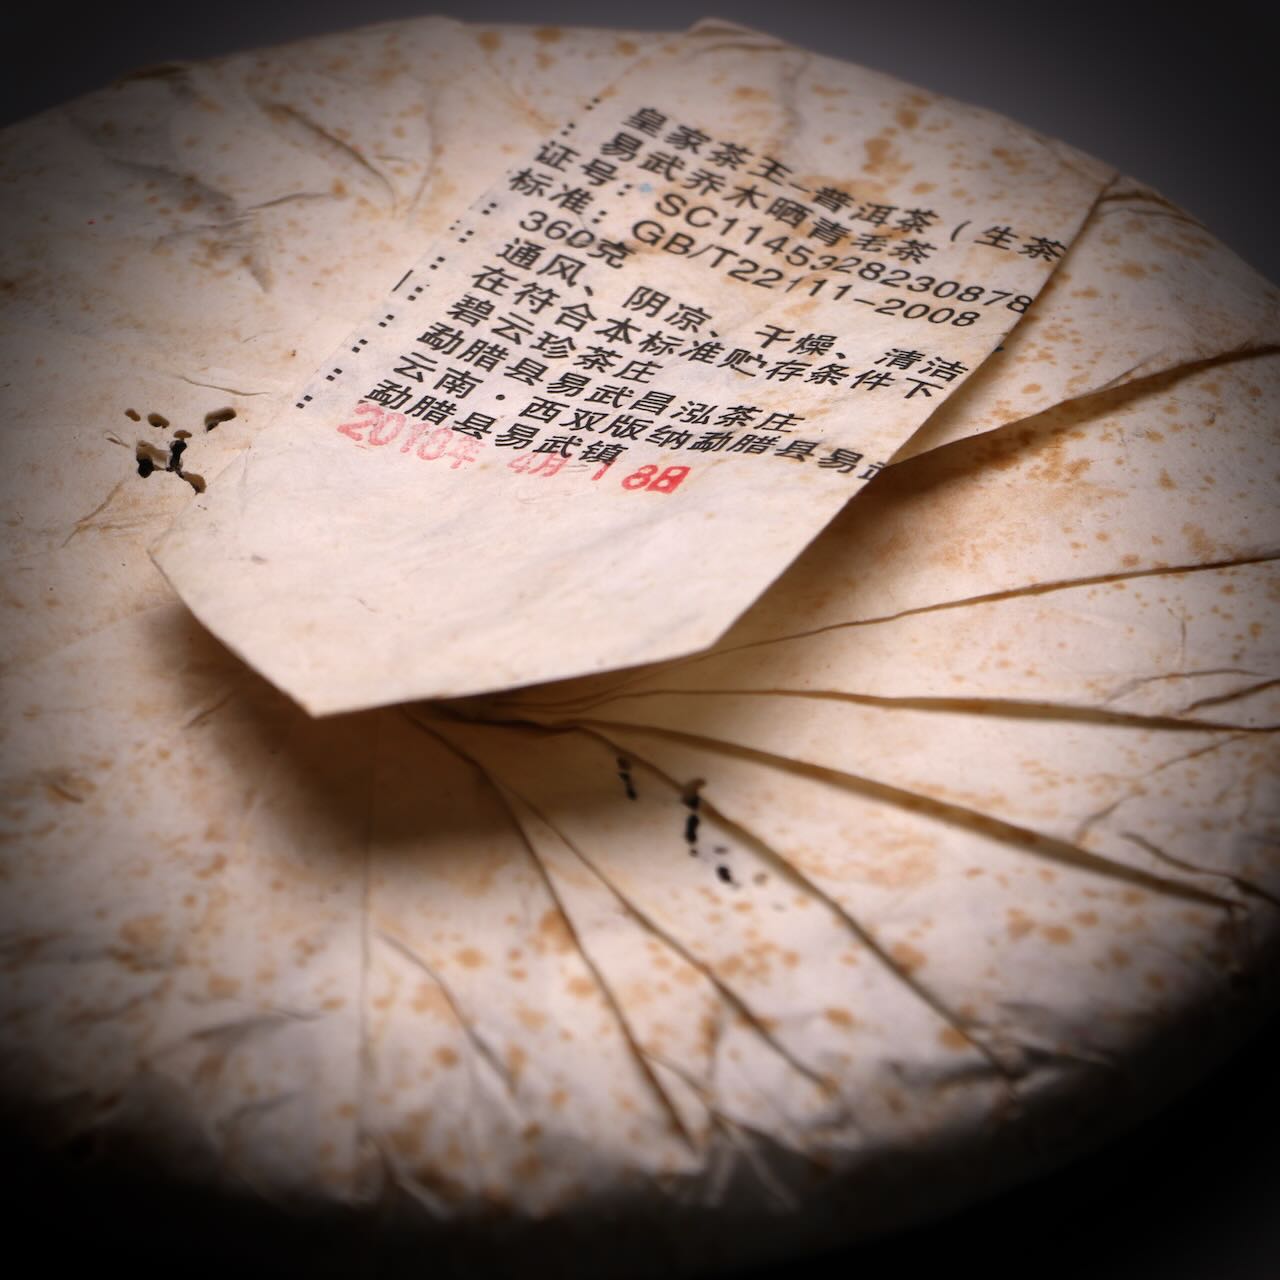 皇家茶王—普洱茶（生茶
易武乔木晒青毛茶
证号：SC11453282230878
标准：GB/T22111-2008
360克
通风、阴凉、干燥、清洁
在符合本标准贮存条件下
碧云珍茶庄
勐腊县易武昌泓茶庄
云南·西双版纳勐腊县易武
勐腊县易武镇
2018年 4月18日